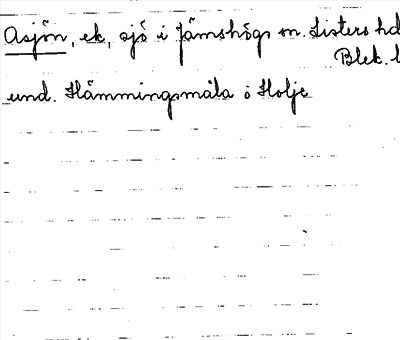 Asjön, ek, sjö i Jämshögs sn. Listers hd
Blek. l
und. Hämmingsmåla o Holje